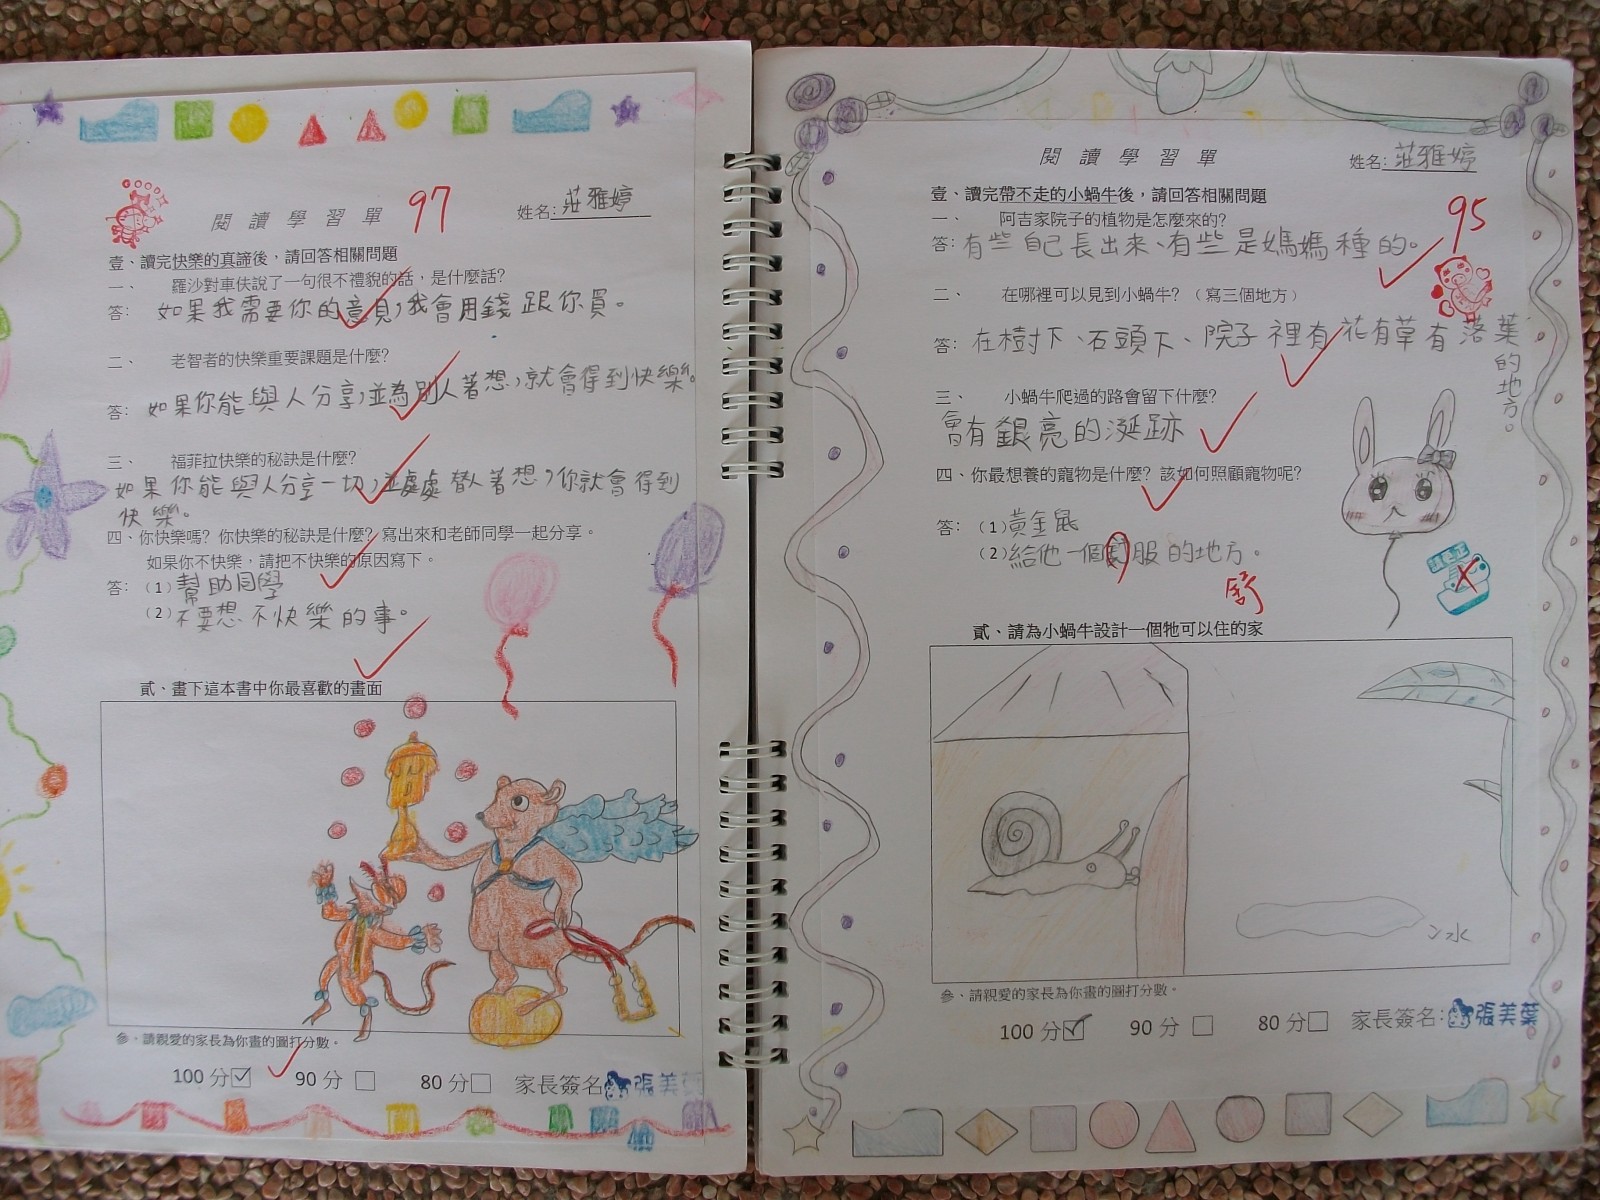 閱讀學習單
97
姓名:莊雅婷
壹、讀完快樂的真諦後，請回答相關問題
一、 羅沙對車伕說了一句很不禮貌的話，是什麼話?
答: 如果我需要你的意見，我會用錢跟你買。
二、 老智者的快樂重要課題是什麼?
答: 如果你能與人分享，並為別人著想，就會得到快樂。
三、 福菲拉快樂的秘訣是什麼?
如果你能與人分享一切，並處處替人著想，你就會得到
快樂。
四、你快樂嗎? 你快樂的秘訣是什麼? 寫出來和老師同學一起分享。
如果你不快樂，請把不快樂的原因寫下。
答: (1) 幫助同學
(2) 不要想不快樂的事。
貳、畫下這本書中你最喜歡的畫面
參、請親愛的家長為你畫的圖打分數。
100 分☑ 90 分□ 80 分□ 家長簽名 張美葉
閱讀學習單
姓名:莊雅婷
壹、讀完帶不走的小蝸牛後，請回答相關問題
95
一、 阿吉家院子的植物是怎麼來的?
答: 有些自己長出來、有些是媽媽種的。
二、 在哪裡可以見到小蝸牛? (寫三個地方)
答: 在樹下、石頭下、院子裡有花有草有落葉
的地方。
三、 小蝸牛爬過的路會留下什麼?
會有銀亮的涎跡
四、你最想養的寵物是什麼? 該如何照顧寵物呢?
答: (1) 黃金鼠
(2) 給他一個服的地方。
舒
貳、請為小蝸牛設計一個牠可以住的家
水
參、請親愛的家長為你畫的圖打分數。
100 分☑ 90 分□ 80 分□ 家長簽名: 張美葉